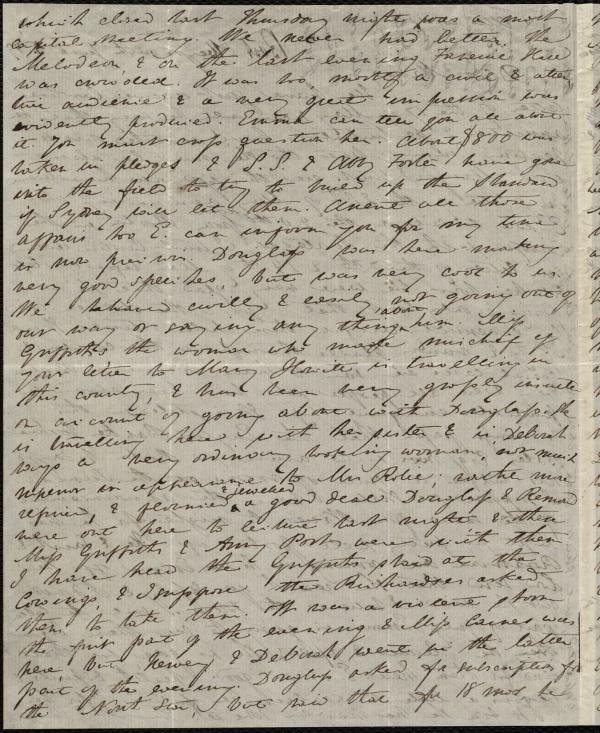 which closed last Thursday night, was a most
capital Meeting. We never had better. The
Melodeon & on the last evening Faneuil Hall
was crowded. It was too, mostly a civil & atten
tive audience & a very great impression was
evidently produced. Emma can tell you all about
it. You must cross question her. About $800 was
taken in pledges & S.S. & Abby Foster have gone
into the field to try to build up the Standard
if Sydney will let them. Anent all those
affairs too E. can inform you for my time
is now precious. Douglass was here making
very good speeches but was very cool to us.
We behaved civilly & easily, not going out of
our way or saying any thing about him. Miss
Griffiths the woman who made mischief of
your letter to Mary Howitt is travelling in
this country, & has been very grossly insulted
on account of going about with Douglass. She
is travelling here with her sister & is, Deborah
says a very ordinary looking woman, not much
superior in appearance to Mrs ; rather more
refined, & flounced & jeweled a good deal. Douglass & Remond
were out here to lecture last night & then
Miss Griffiths & Amy Post were with them
I have heard the Griffiths staid at the
Cowings, & I suppose the Richardses asked
them to take them. It was a violent storm
the first part of the evening & Miss Caines was
here, but Hervey & Deborah went in the latter
part of the evening. Douglass asked for subscription for
the North Star, but said that for 18 mos he